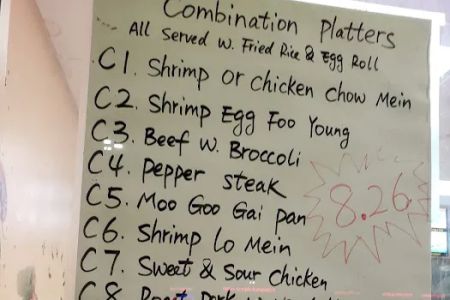 Combination Platters
All Served W. Fried Rice & Egg Roll
C1. Shrimp or Chicken Chow Mein
C2. Shrimp Egg Foo Young
C3. Beef W. Broccoli
C4. Pepper steak
C5. Moo Goo Gai pan
8.26
C6. Shrimp Lo Mein
C7. Sweet & Sour Chicken
C8. Roast Pork